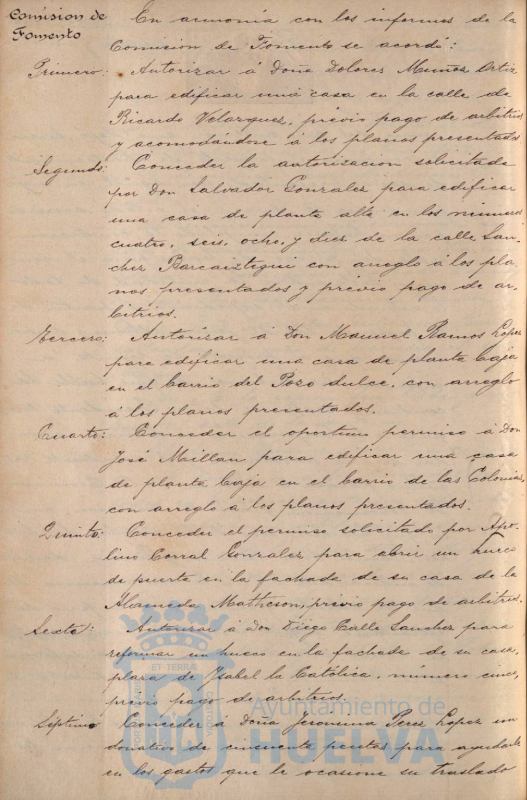 Comision de
Fomento
En armonía con los informes de la
Comision de Fomento se acordó:
Primero: Autorizar á Doña Dolores Muñoz Ortiz
para edificar una casa en la calle de
Ricardo Velazquez, prévio pago de arbitrios
y acomodándose á los planos presentados
Segundo: Conceder la autorizacion solicitada
por Don Salvador Gonzalez para edificar
una casa de planta alta en los números
cuatro, seis, ocho, y diez de la calle San-
chez Barcaiztegui con arreglo á los pla-
nos presentados y previo pago de ar-
bitrios.
Tercero: Autorizar á Don Manuel Ramos Lopez
para edificar una casa de planta baja
en el barrio del Pozo dulce, con arreglo
á los planos presentados.
Cuarto: Conceder el oportuno permiso á Don
José Millan para edificar una casa
de planta baja en el barrio de las Colonias,
con arreglo á los planos presentados.
Quinto: Conceder el permiso solicitado por Apo-
lino Corral Gonzalez, para abrir un hueco
de puerta en la fachada de su casa de la
Alameda Matheson, prévio pago de arbitrios.
Sexto: Autorizar á Don Diego Calle Sanchez para
reformar un hueco en la fachada de su casa,
plaza de Ysabel la Católica, número cinco,
prévio pago de arbitrios.
Séptimo: Conceder á Doña Jeronima Perez Lopez un
donativo de cincuenta pesetas para ayudarle
en los gastos que le ocasione su traslado
ET TERRÆ
Ayuntamiento de
HUELVA